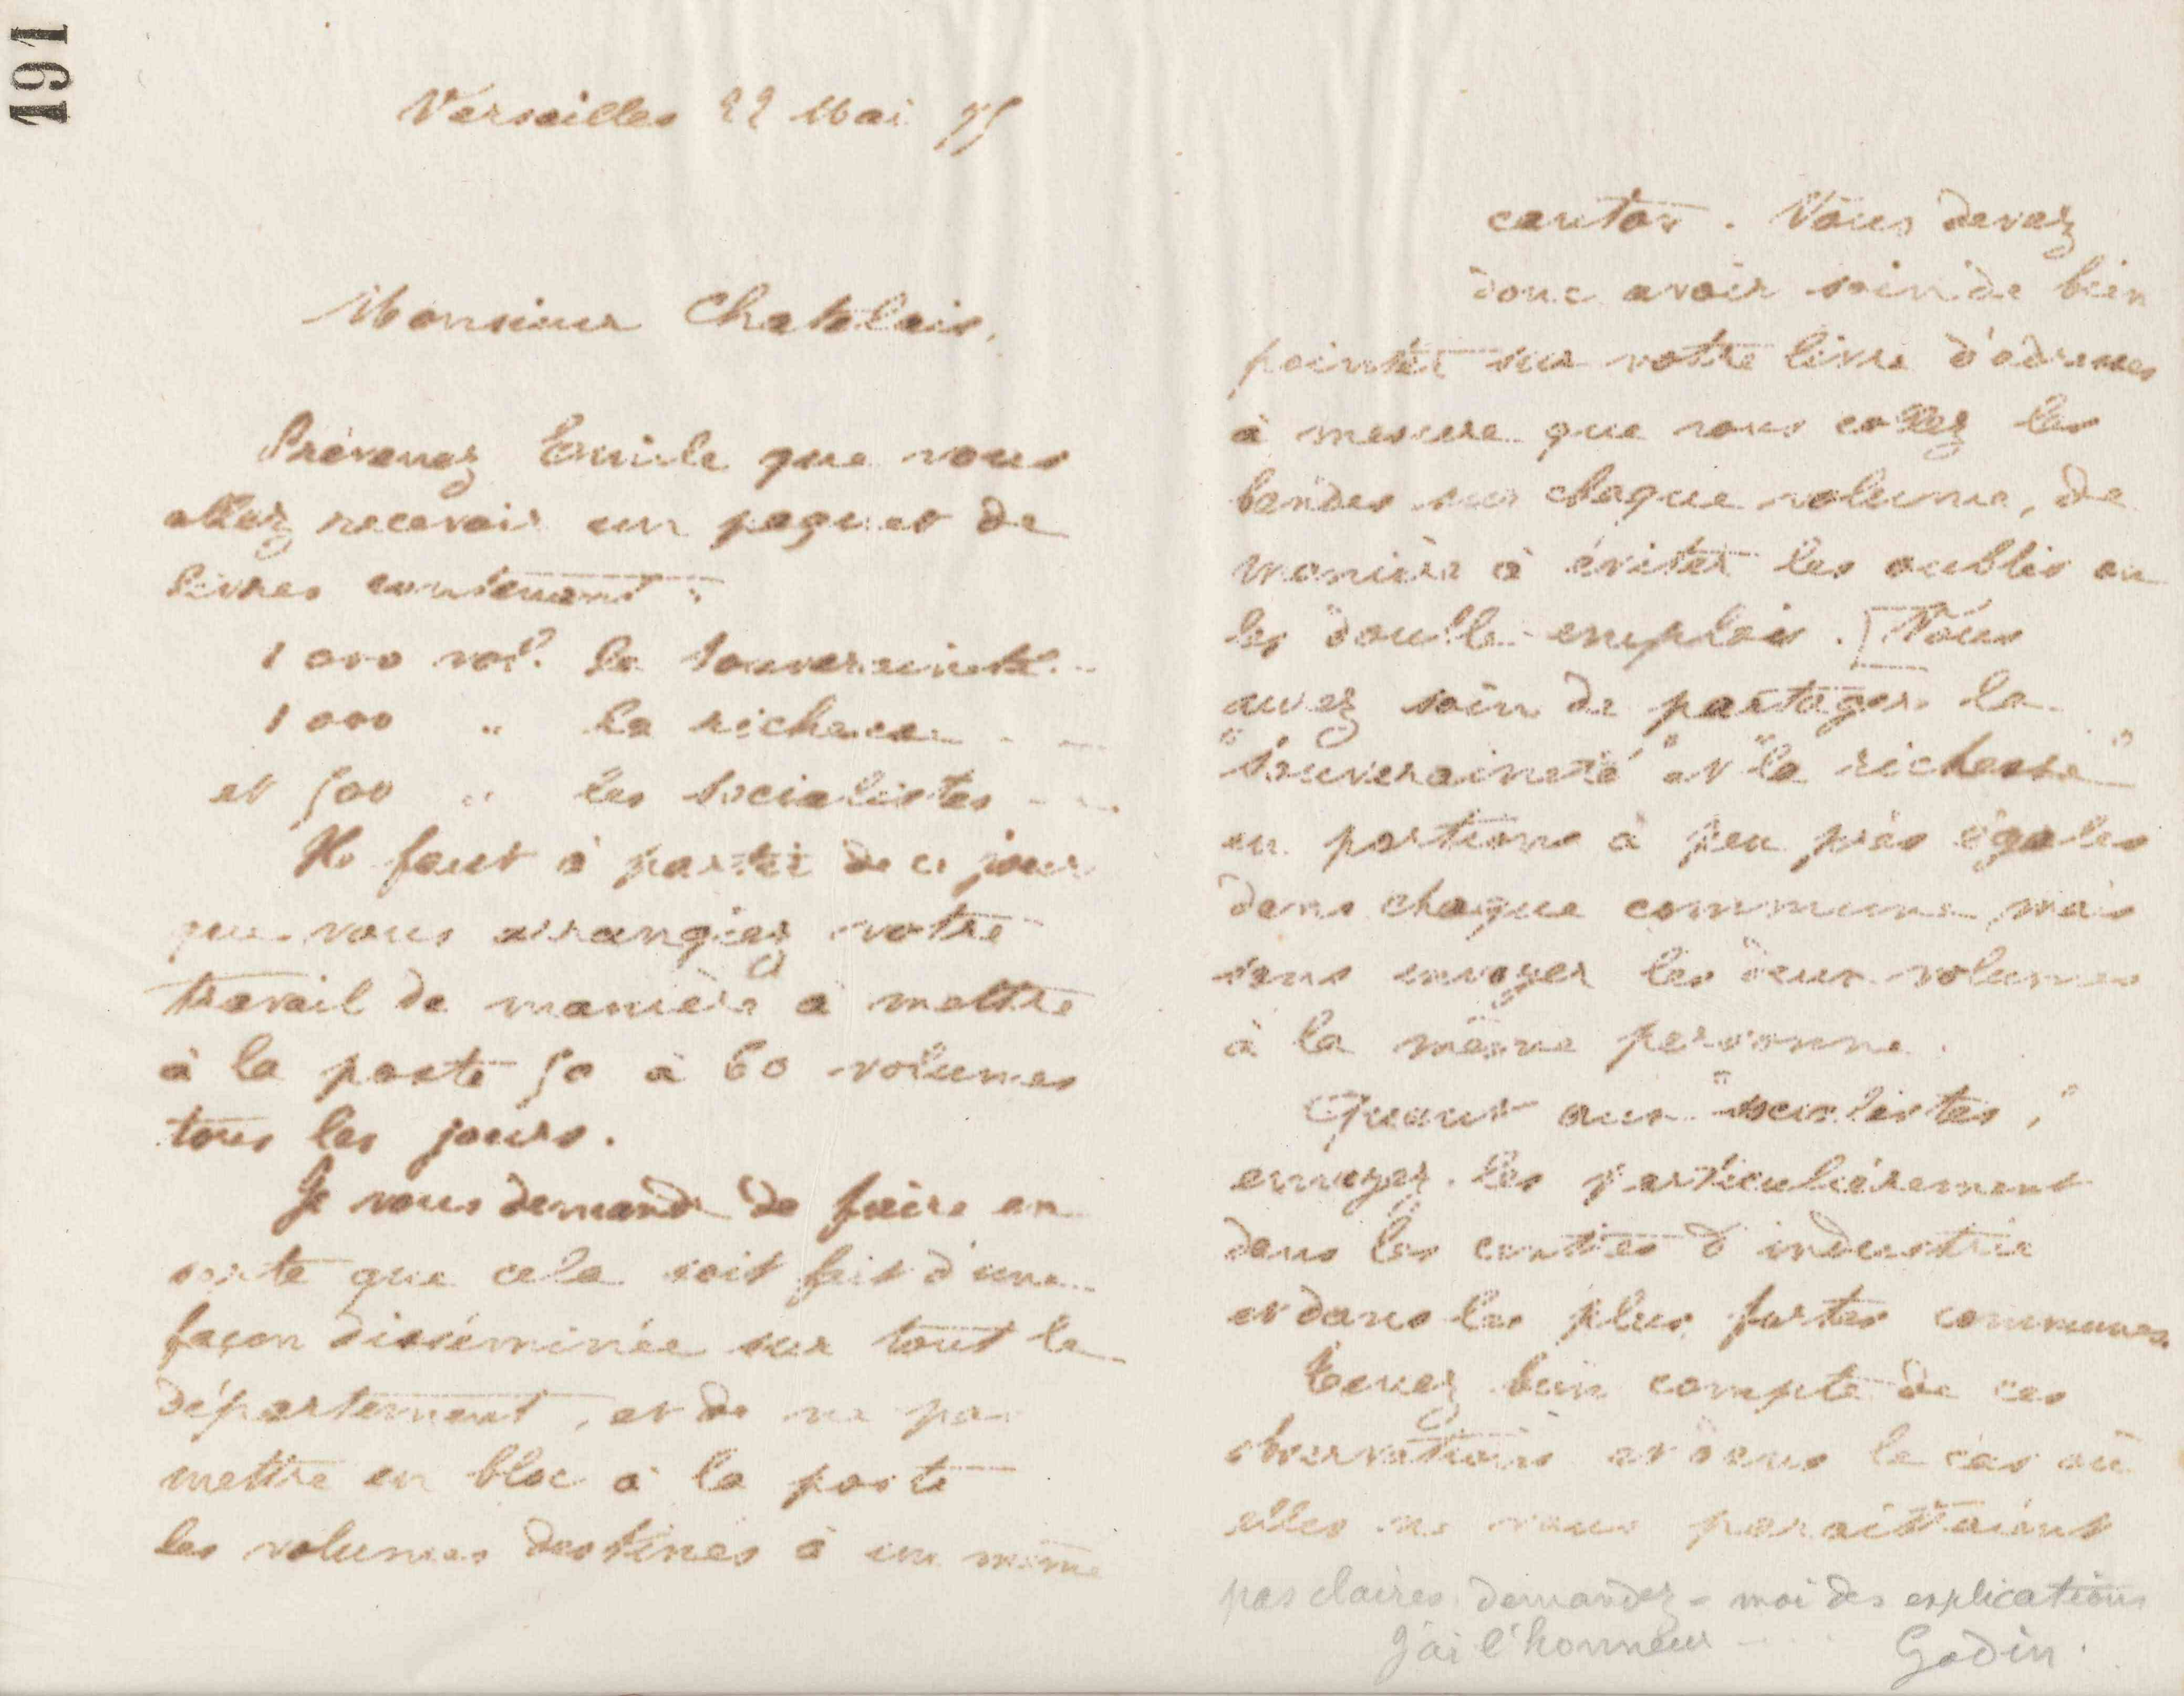 191
Versailles 22 Mai 75
Monsieur Chatelais,
Prévenez Emile que vous
allez recevoir un paquet de
livres contenant :
1000 vol. La Souveraineté
1000 " La richesse
et 500 " les socialistes
Il faut à partir de ce jour
que vous arrangiez votre
travail de manière à mettre
à la poste 50 à 60 volumes
tous les jours.
Je vous demande de faire en
sorte que cela soit fait d'une
façon disséminée sur tout le
département, et de ne pas
mettre en bloc à la poste
les volumes destinés à un même
canton. Vous devez
donc avoir soin de bien
pointer sur votre livre d'adresses
à mesure que vous collez les
bandes sur chaque volume, de
manière à éviter les oublis ou
les double-emplois. [Vous
aurez soin de partager la
"Souveraineté" et "la richesse"
en portions à peu près égales
dans chaque commune, mais
sans envoyer les deux volumes
à la même personne.
Quant aux "socialistes",
envoyez-les particulièrement
dans les centres d'industrie
et dans les plus fortes communes.
Tenez bien compte de ces
observations et dans le cas où
elles ne vous paraîtraient
pas claires demandez-moi des explications
J'ai l'honneur ....
Godin.